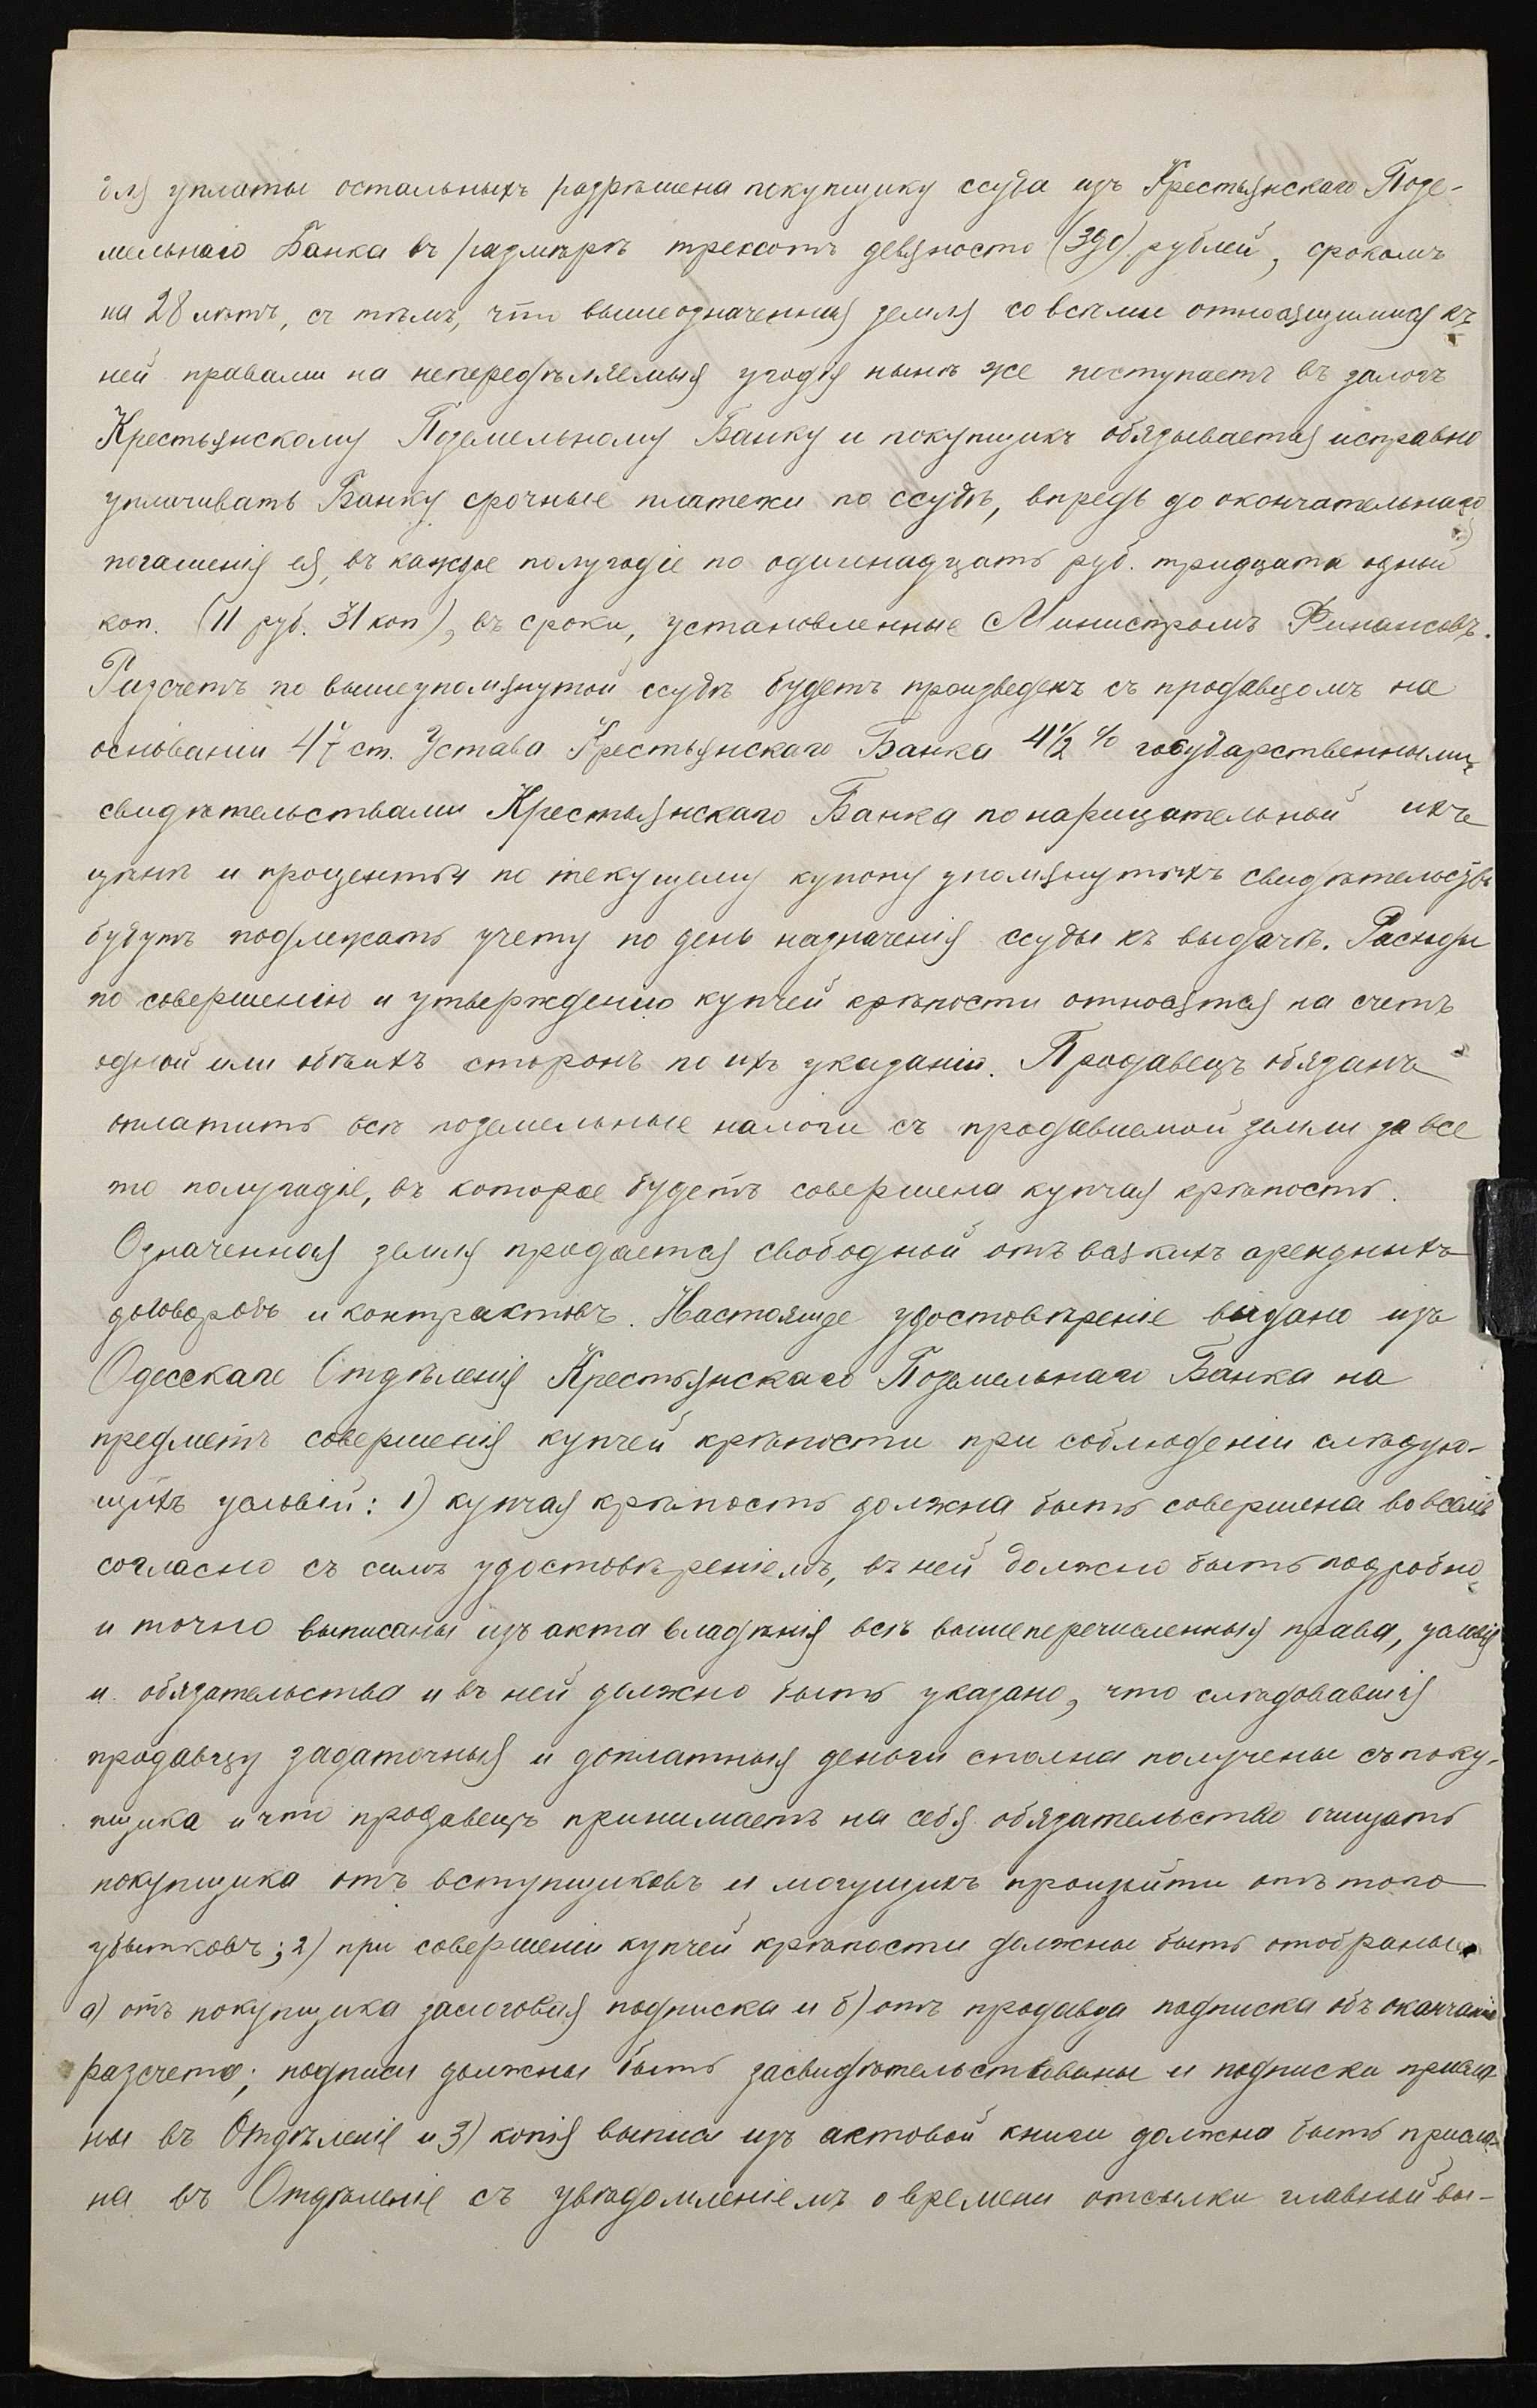 для уплаты остальныхъ разрѣшена покупщику ссуда изъ Крестьянскаго Позе-
мельнаго Банка въ размѣрѣ трехсотъ девяносто (390) рублей, срокомъ
на 28 лѣтъ, съ тѣмъ, что вышеозначенная земля со всѣми относящимися къ
ней правами на непередѣляемыя угодія нынѣ же поступаетъ въ залогъ
Крестьянскому Поземельному Банку и покупщикъ обязывается исправно
уплачивать Банку срочные платежи по ссудѣ, впредь до окончательнаго
погашенія ея, въ каждое полугодіе по одиннадцать руб. тридцать одной
коп. (11 руб. 31 коп), въ сроки, установленные Министромъ Финансовъ.
Разсчетъ по вышеупомянутой ссудѣ будетъ произведенъ съ продавцомъ на
основаніи 47 ст. Устава Крестьянскаго Банка 4½ % государственными
свидѣтельствами Крестьянскаго Банка по нарицательной ихъ
цѣнѣ и проценты по текущему купону упомянутыхъ свидѣтельствъ
будутъ подлежать учету по день назначенія ссуды къ выдачѣ. Расходы
по совершенію и утвержденію купчей крѣпости относятся на счетъ
одной или обѣихъ сторонъ по ихъ указанію. Продавецъ обязанъ
оплатить всѣ поземельные налоги съ продаваемой земли за все
то полугодіе, въ которое будетъ совершена купчая крѣпость.
Означенная земля продается свободной отъ всякихъ арендныхъ
договоровъ и контрактовъ. Настоящее удостовѣреніе выдано изъ
Одесскаго Отдѣленія Крестьянскаго Поземельнаго Банка на
предметъ совершенія купчей крѣпости при соблюденіи слѣдую-
щихъ условій: 1) купчая крѣпость должна быть совершена во всемъ
согласно съ симъ удостовѣреніемъ, въ ней должно быть подробно
и точно выписаны изъ акта владѣнія всѣ вышеперечисленныя права, условія
и обязательства и въ ней должно быть указано, что слѣдовавшія
продавцу задаточныя и доплатныя деньги сполна получены съ поку-
пщика и что продавецъ принимаетъ на себя обязательство очищать
покупщика отъ вступщиковъ и могущихъ произойти отъ того
убытковъ; 2) при совершеніи купчей крѣпости должны быть отобраны
а) отъ покупщика залоговая подписка и б) отъ продавца подписка объ окончаніи
разсчета; подписи должны быть засвидѣтельствованы и подписки присла-
ны въ Отдѣленіе и 3) копія выписи изъ актовой книги должна быть присла-
на въ Отдѣленіе съ увѣдомленіемъ о времени отсылки главной вы-